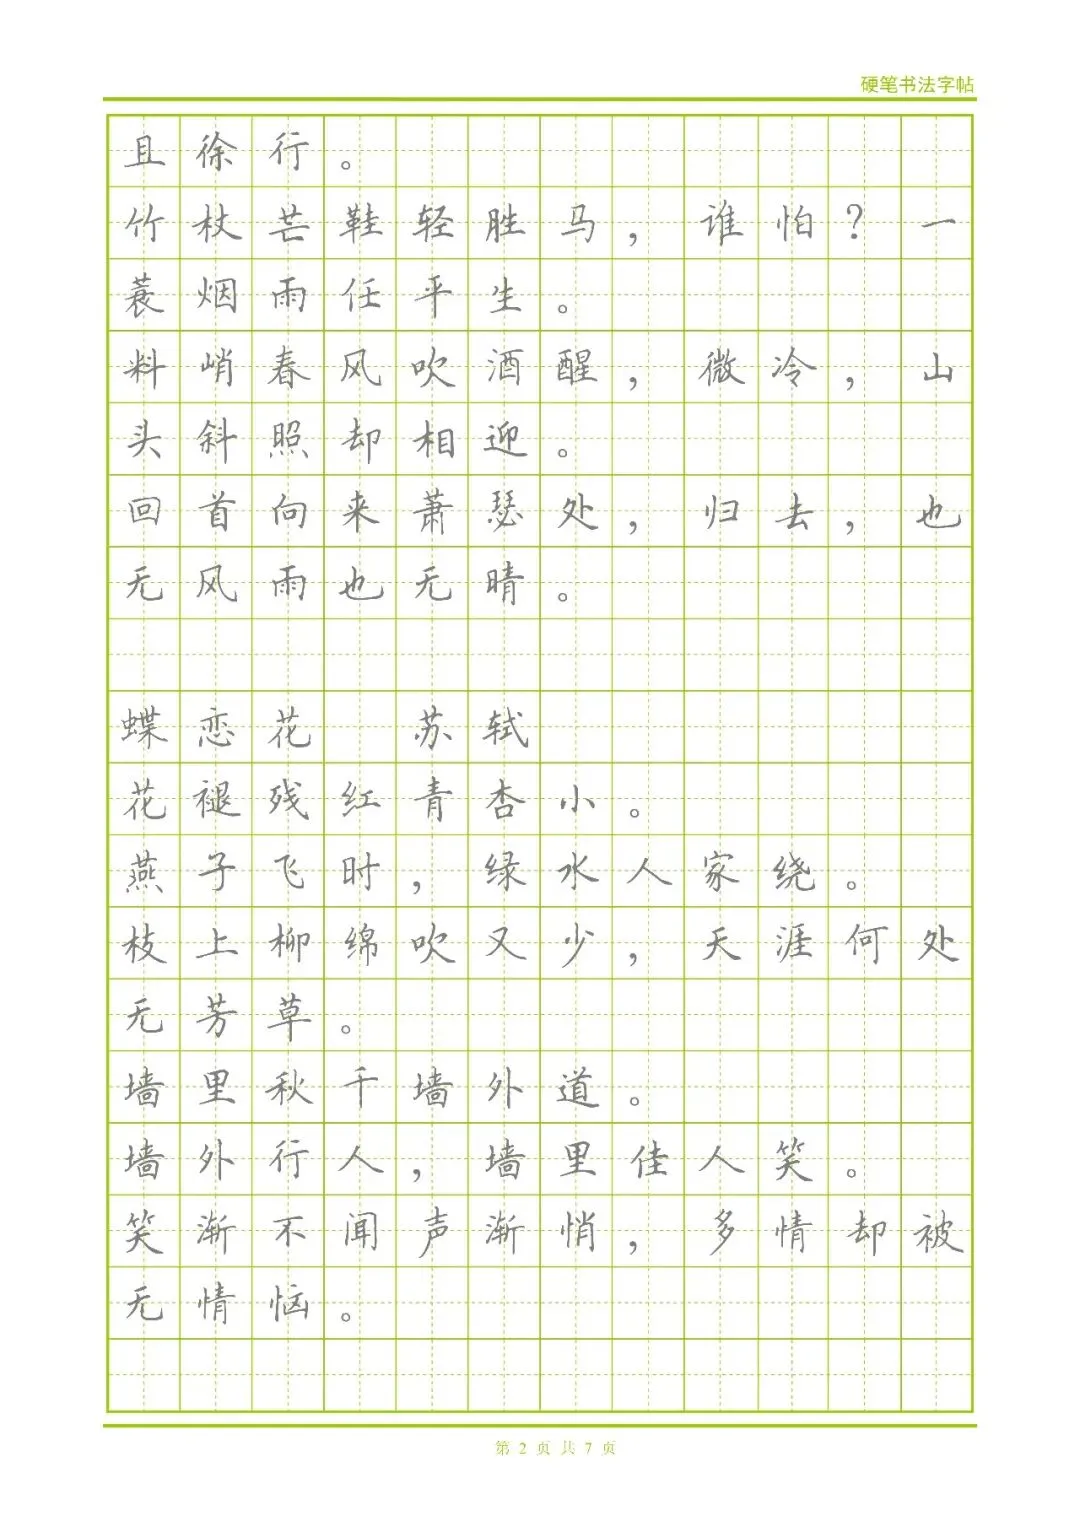 硬笔书法字帖
且徐行。
竹杖芒鞋轻胜马，谁怕？一
蓑烟雨任平生。
料峭春风吹酒醒，微冷，山
头斜照却相迎。
回首向来萧瑟处，归去，也
无风雨也无晴。
蝶恋花 苏轼
花褪残红青杏小。
燕子飞时，绿水人家绕。
枝上柳绵吹又少，天涯何处
无芳草。
墙里秋千墙外道。
墙外行人，墙里佳人笑。
笑渐不闻声渐悄，多情却被
无情恼。
第 2 页 共 7 页